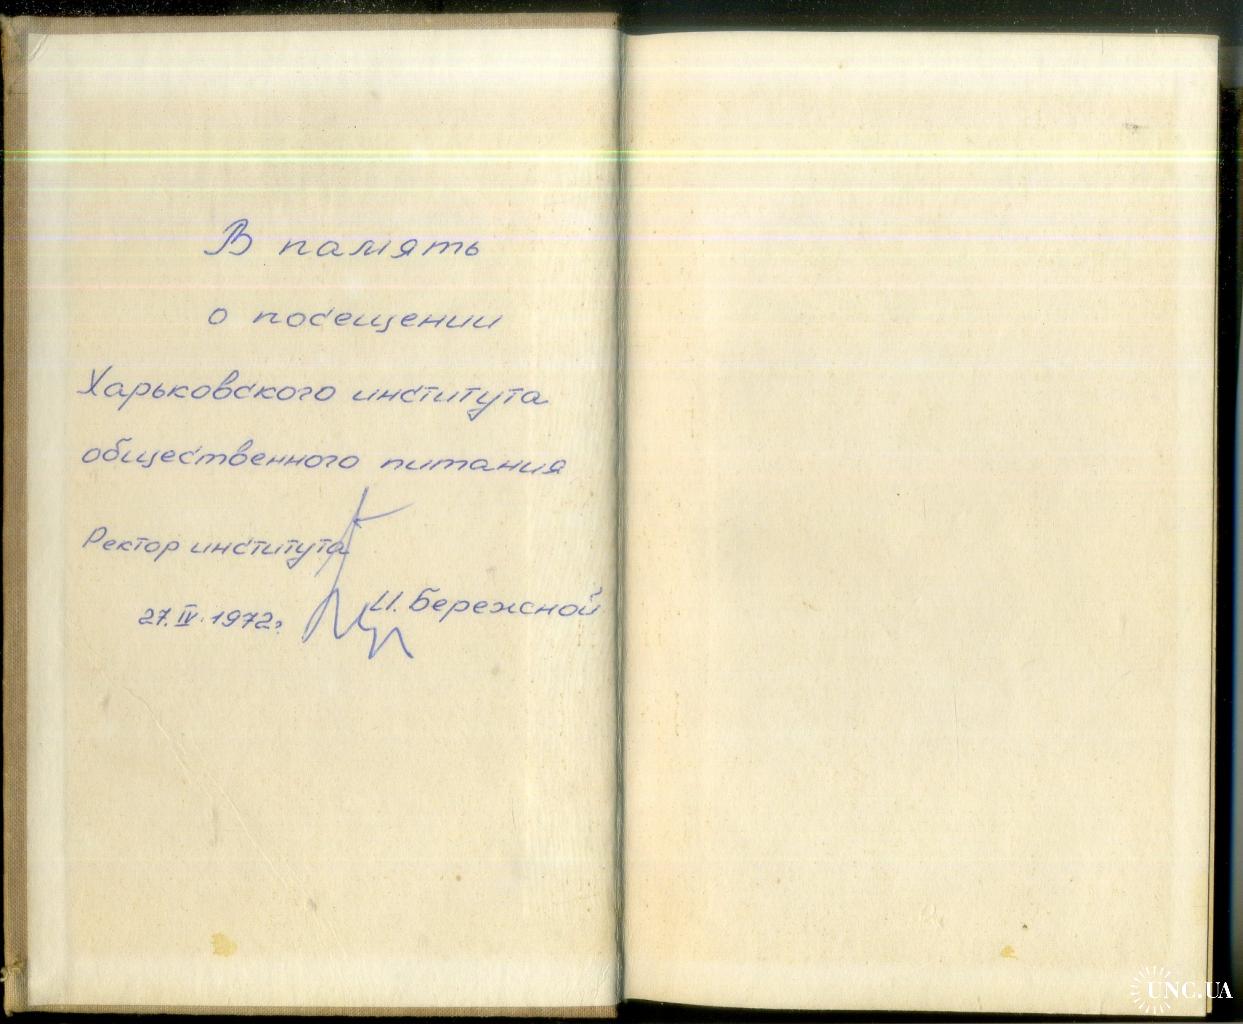 В память
о посещении
Харьковского института
общественного питания
Ректор института
И. Бережной
27.IV.1972г.
UNC.UA